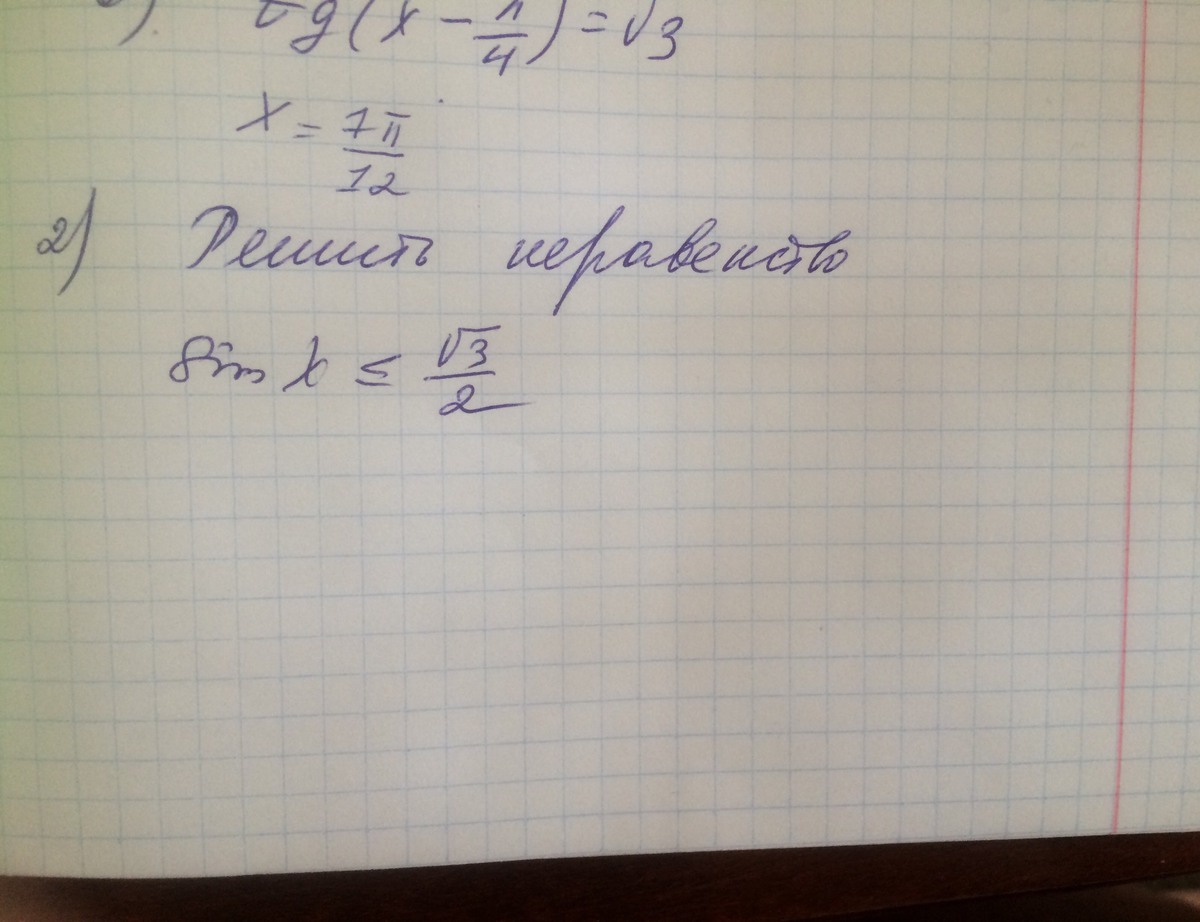 tg(x - π/4) = √3
x = 7π/12
2) Решить неравенство
sin x ≤ √3/2